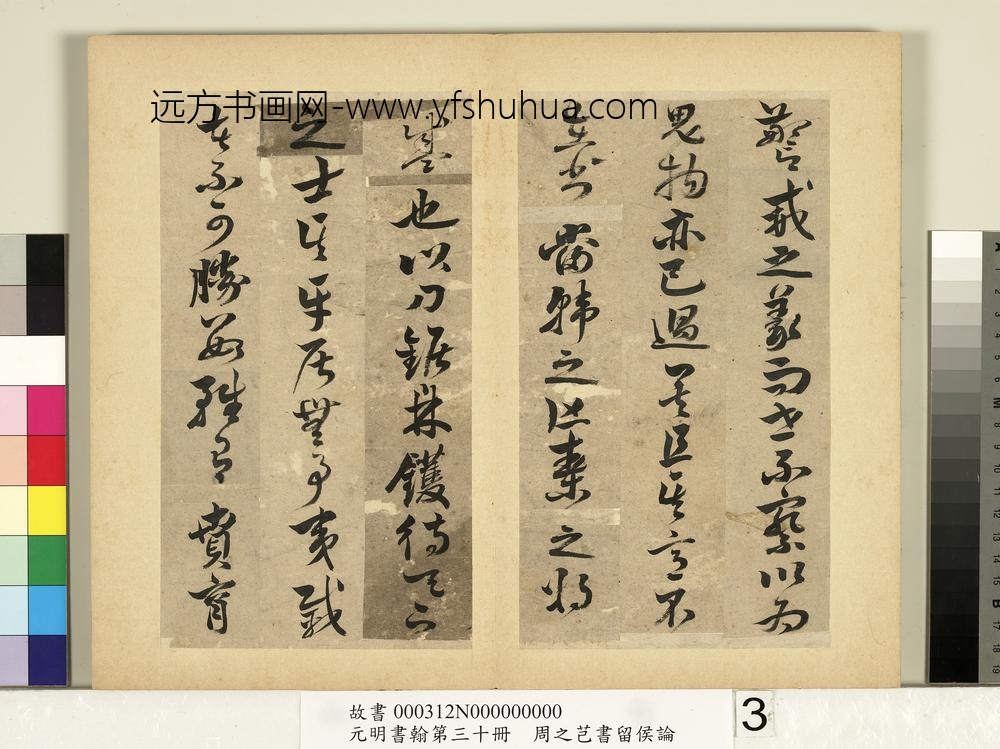 远方书画网-www.yfshuhua.com
警戒之義而世不察以為
鬼物亦已過矣且其意不
在書當韓之亡秦之方
盛也以刀鋸鼎鑊待天下
之士其平居無事夷滅
者不可勝數雖有賁育
故書 000312N000000000
元明書翰第三十冊 周之芑書留侯論
3